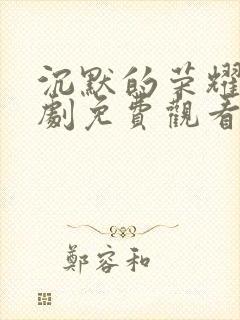 沉默的荣耀
劇免費觀看
鄭容和